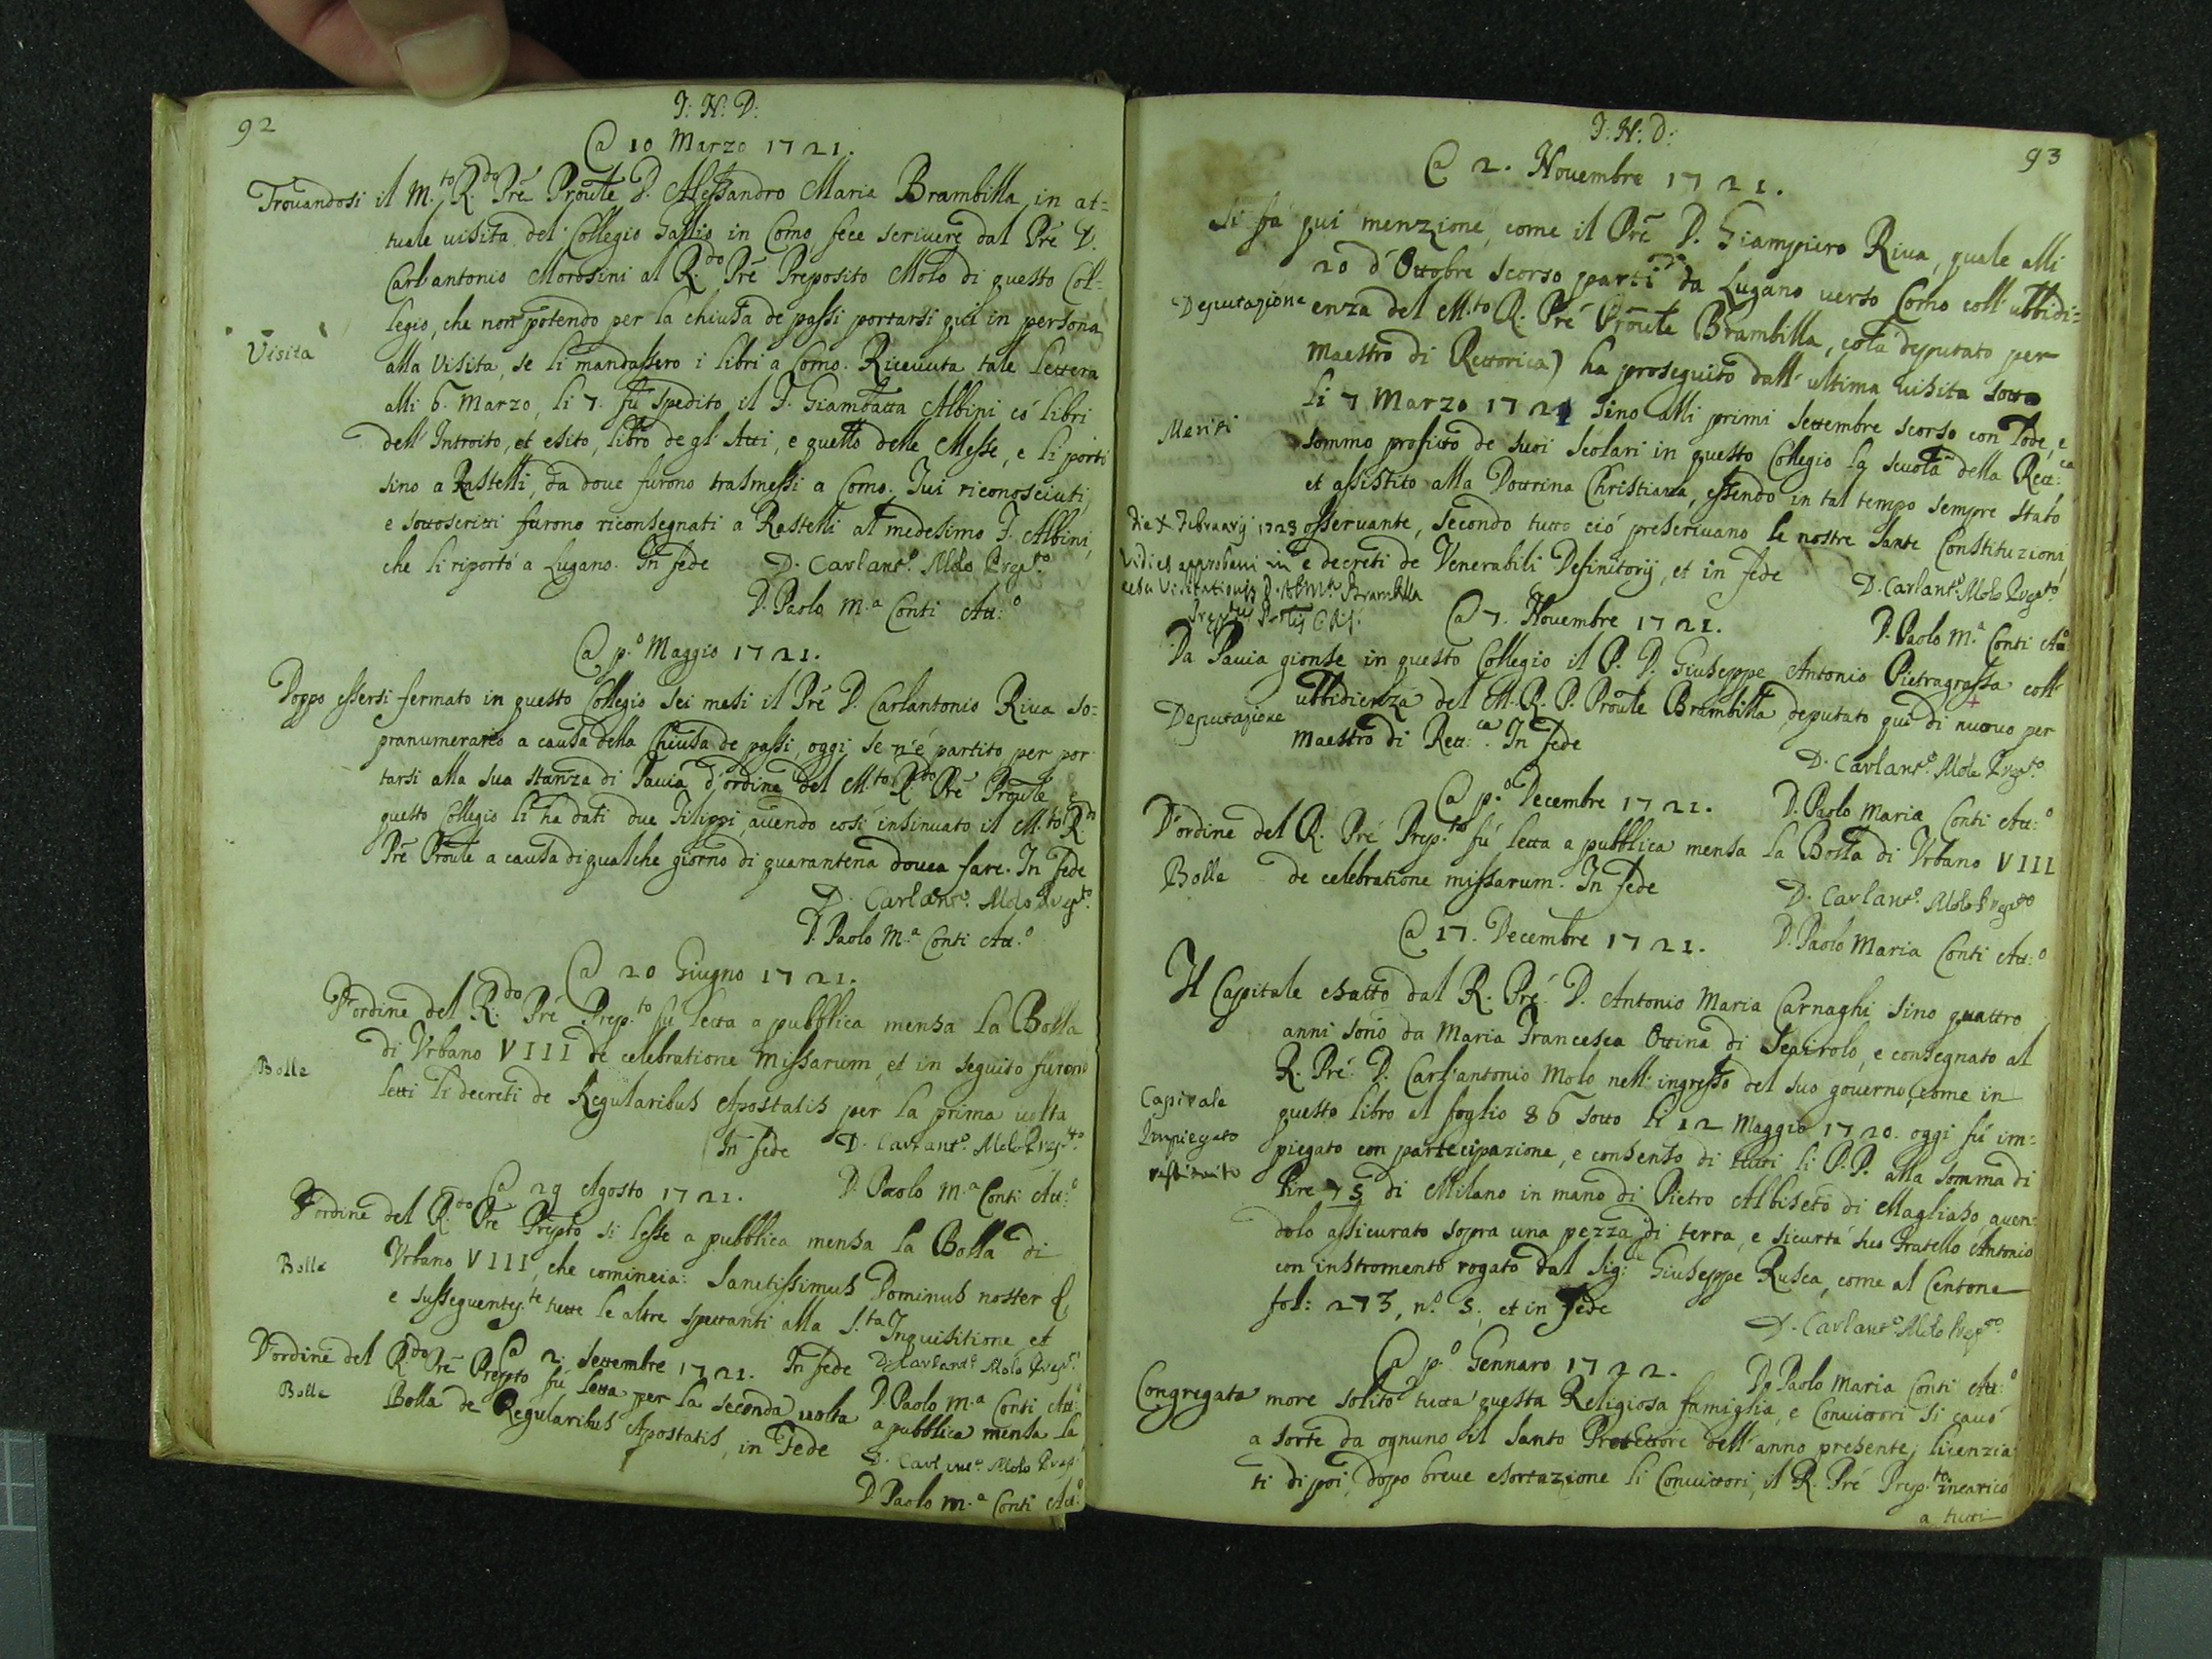 92
J: N: D:
@ 10 Marzo 1721.
Trouandosi il M.to R.do Prē Proūle D. Alessandro Maria Brambilla in at=
tuale uisita del Collegio Gallio in Como fece scriuere dal Prē D.
Carlantonio Morosini al R.do Prē Preposito Molo di questo Col=
legio, che non potendo per la chiusa de passi portarsi qui in persona
Visita
alla Visita, se li mandassero i libri a Como. Riceuuta tale lettera
alli 6. Marzo, li 7. fù spedito il F. Giambatta Albini có libri
dell' Introito, et esito, libro degl' Atti, e quello delle Messe, e li portò
sino a Rastelli, da doue furono trasmessi a Como. Iui riconosciuti,
e sottoscritti furono riconsegnati a Rastelli al medesimo F. Albini,
che li riportó a Lugano. In fede D. Carlant.o Molo Prep.to
D. Paolo M.a Conti Att:o
@ p.o Maggio 1721.
Doppo essersi fermato in questo Collegio sei mesi il Prē D. Carlantonio Riua so=
pranumerario a causa della Chiusa de passi, oggi se n'é partito per por
tarsi alla sua stanza di Pauia d'ordine del M.to R.do Prē Proūle, e
questo Collegio li ha dati due Filippi, auendo cosí insinuato il M.to R.do
Prē Proūle a causa di qualche giorno di quarantena douea fare. In fede
D. Carlant.o Molo Prep.to
D. Paolo M.a Conti Att.o
@ 20 Giugno 1721.
D'ordine del R.do Prē Prep.to fù letta a pubblica mensa la Bolla
di Vrbano VIII de celebratione missarum, et in seguito furono
Bolle
letti li decreti de Regularibus Apostatis per la prima uolta
In fede D. Carlant.o Molo Prep.to
@ 29 Agosto 1721. D. Paolo M.a Conti Att:o
D'ordine del R.do Prē Prepto si lesse a pubblica mensa la Bolla di
Bolle
Vrbano VIII, che comincia: Sanctissimus Dominus noster &
e susseguentem.te tutte le altre spettanti alla S.ta Inquisitione et
@ 2. Settembre 1721. In fede D. Carlant.o Molo Prep.to
D'ordine del R.do Prē Prepto fù letta per la seconda uolta D. Paolo M.a Conti Att:o
a pubblica mensa la
Bolle
Bolla de Regularibus Apostatis, in Fede
D. Carlant.o Molo Prep.
D. Paolo M.a Conti Att:o
93
J: N: D:
@ 2. Nouembre 1721.
Si fà qui menzione, come il Prē D. Giampiero Riua, quale alli
20 d'Ottobre scorso partí da Lugano uerso Como coll' ubbidi=
Deputazione
enza del M.to R. Prē Proūle Brambilla, colà deputato per
Maestro di Rettorica) ha proseguito dall' ultima uisita sotto
li 7 Marzo 1721 sino alli primi Settembre scorso con lode, e
Meriti
sommo profitto de suoi scolari in questo Collegio la scuola della Rett:ca
et assistito alla Dottrina Christiana, essendo in tal tempo sempre stato
osseruante, secondo tutto ció prescriuano le nostre Sante Constituzioni,
e decreti de Venerabili Definitorij, et in fede
D. Carlant.o Molo Prep.to
die X Februarij 1723
Vidi et approbaui in
Visitationis D. Brambilla
@ 7. Nouembre 1721.
D. Paolo M.a Conti Att.o
Da Pauia gionse in questo Collegio il P. D. Giuseppe Antonio Pietragrassa coll'
Deputazione
ubbidienza del M. R. P. Proūle Brambilla, deputato qui di nuouo per
Maestro di Rett:ca. In fede
D. Carlant.o Molo Prep.to
@ p.o Decembre 1721. D. Paolo Maria Conti Att:o
D'ordine del R. Prē Prep.to fù letta a pubblica mensa la Bolla di Vrbano VIII
Bolle
de celebratione missarum. In fede
D. Carlant.o Molo Prep.to
@ 17. Decembre 1721. D. Paolo Maria Conti Att:o
Il Capitale esatto dal R. Pré. D. Antonio Maria Carnaghi sino quattro
anni sono da Maria Francesca Ottina di Scairolo, e consegnato al
R. Pré. D. Carl'antonio Molo nell' ingresso del suo gouerno, come in
Capitale
Impiegato
questo libro al foglio 86 sotto li 12 Maggio 1720. oggi fù im=
piegato con partecipazione, e consenso di tutti li P.P. alla somma di
lire 75 di Milano in mano di Pietro Albiseto di Magliaso, auen=
dolo assicurato sopra una pezza di terra, e sicurtà suo fratello Antonio
con instromento rogato dal Sig.r Giuseppe Rusca, come al Centone
fol: 273, n.o 5; et in fede
D. Carlant.o Molo Prep.to
@ p.o Gennaro 1722. D. Paolo Maria Conti Att:o
Congregata more solito tutta questa Religiosa famiglia, e Conuittori si cauó
a sorte da ognuno il Santo Protettore dell' anno presente; licenzia
ti di poi, doppo breue esortazione li Conuittori, il R. Pré Prep.to incaricó
a tutti